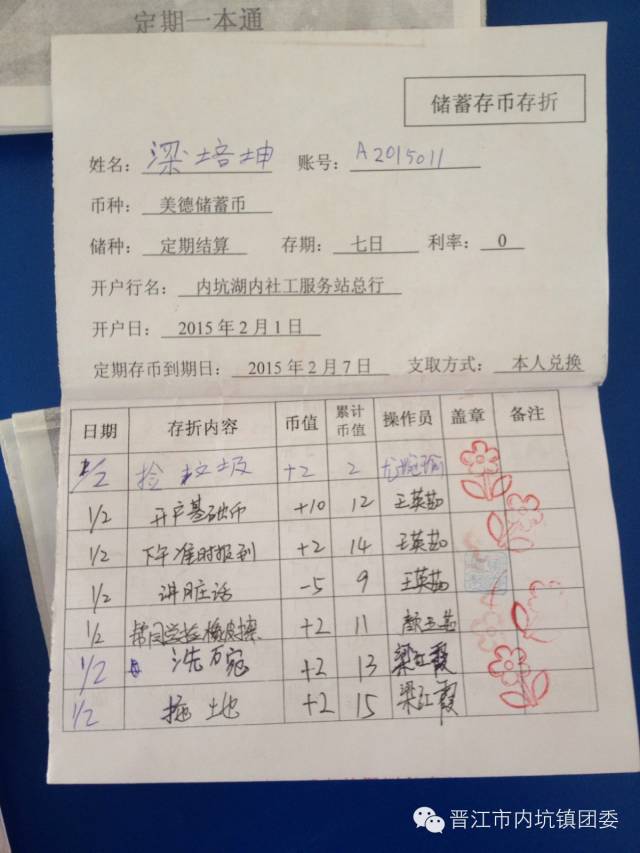 定期一本通
储蓄存币存折
姓名: 梁培坤 账号: A2015011
币种: 美德储蓄币
储种: 定期结算 存期: 七日 利率: 0
开户行名: 内坑湖内社工服务站总行
开户日: 2015年2月1日
定期存币到期日: 2015年2月7日 支取方式: 本人兑换
日期 存折内容 币值 累计币值 操作员 盖章 备注
1/2 捡垃圾 +2 2
1/2 开户基础币 +10 12 王英茹
1/2 下午准时报到 +2 14 王英茹
1/2 讲脏话 -5 9 王英茹
1/2 帮同学捡橡皮擦 +2 11
1/2 洗碗 +2 13 梁红霞
1/2 拖地 +2 15 梁红霞
晋江市内坑镇团委